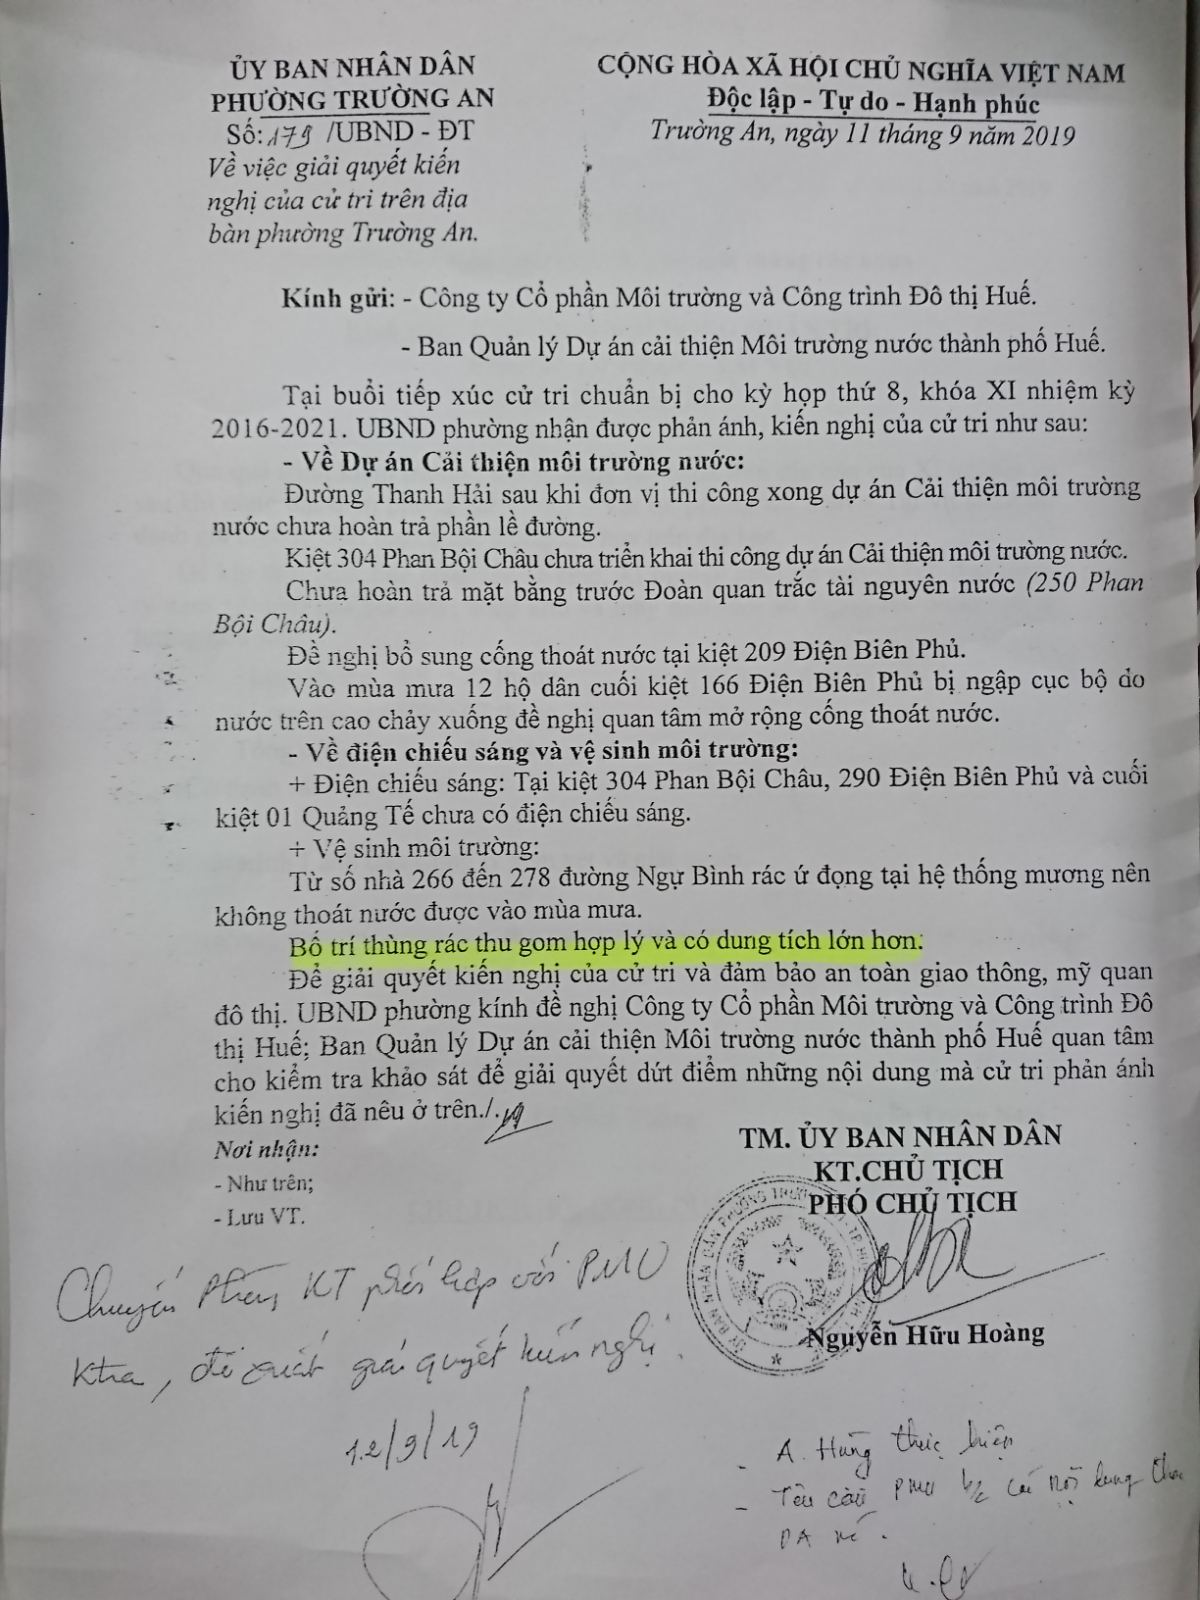 ỦY BAN NHÂN DÂN
PHƯỜNG TRƯỜNG AN
Số: 179 /UBND - ĐT
Về việc giải quyết kiến
nghị của cử tri trên địa
bàn phường Trường An.
CỘNG HÒA XÃ HỘI CHỦ NGHĨA VIỆT NAM
Độc lập - Tự do - Hạnh phúc
Trường An, ngày 11 tháng 9 năm 2019
Kính gửi: - Công ty Cổ phần Môi trường và Công trình Đô thị Huế.
- Ban Quản lý Dự án cải thiện Môi trường nước thành phố Huế.
Tại buổi tiếp xúc cử tri chuẩn bị cho kỳ họp thứ 8, khóa XI nhiệm kỳ
2016-2021. UBND phường nhận được phản ánh, kiến nghị của cử tri như sau:
- Về Dự án Cải thiện môi trường nước:
Đường Thanh Hải sau khi đơn vị thi công xong dự án Cải thiện môi trường
nước chưa hoàn trả phần lề đường.
Kiệt 304 Phan Bội Châu chưa triển khai thi công dự án Cải thiện môi trường nước.
Chưa hoàn trả mặt bằng trước Đoàn quan trắc tài nguyên nước (250 Phan
Bội Châu).
Đề nghị bổ sung cống thoát nước tại kiệt 209 Điện Biên Phủ.
Vào mùa mưa 12 hộ dân cuối kiệt 166 Điện Biên Phủ bị ngập cục bộ do
nước trên cao chảy xuống đề nghị quan tâm mở rộng cống thoát nước.
- Về điện chiếu sáng và vệ sinh môi trường:
+ Điện chiếu sáng: Tại kiệt 304 Phan Bội Châu, 290 Điện Biên Phủ và cuối
kiệt 01 Quảng Tế chưa có điện chiếu sáng.
+ Vệ sinh môi trường:
Từ số nhà 266 đến 278 đường Ngự Bình rác ứ đọng tại hệ thống mương nên
không thoát nước được vào mùa mưa.
Bố trí thùng rác thu gom hợp lý và có dung tích lớn hơn.
Để giải quyết kiến nghị của cử tri và đảm bảo an toàn giao thông, mỹ quan
đô thị. UBND phường kính đề nghị Công ty Cổ phần Môi trường và Công trình Đô
thị Huế; Ban Quản lý Dự án cải thiện Môi trường nước thành phố Huế quan tâm
cho kiểm tra khảo sát để giải quyết dứt điểm những nội dung mà cử tri phản ánh
kiến nghị đã nêu ở trên./.
Nơi nhận:
- Như trên;
- Lưu VT.
TM. ỦY BAN NHÂN DÂN
KT.CHỦ TỊCH
PHÓ CHỦ TỊCH
Nguyễn Hữu Hoàng
Chuyển Phòng KT phối hợp với PMU
ktra, đề xuất giải quyết kiến nghị.
12/9/19
- A. Hùng thực hiện
- Yêu cầu PMU b/c các nội dung